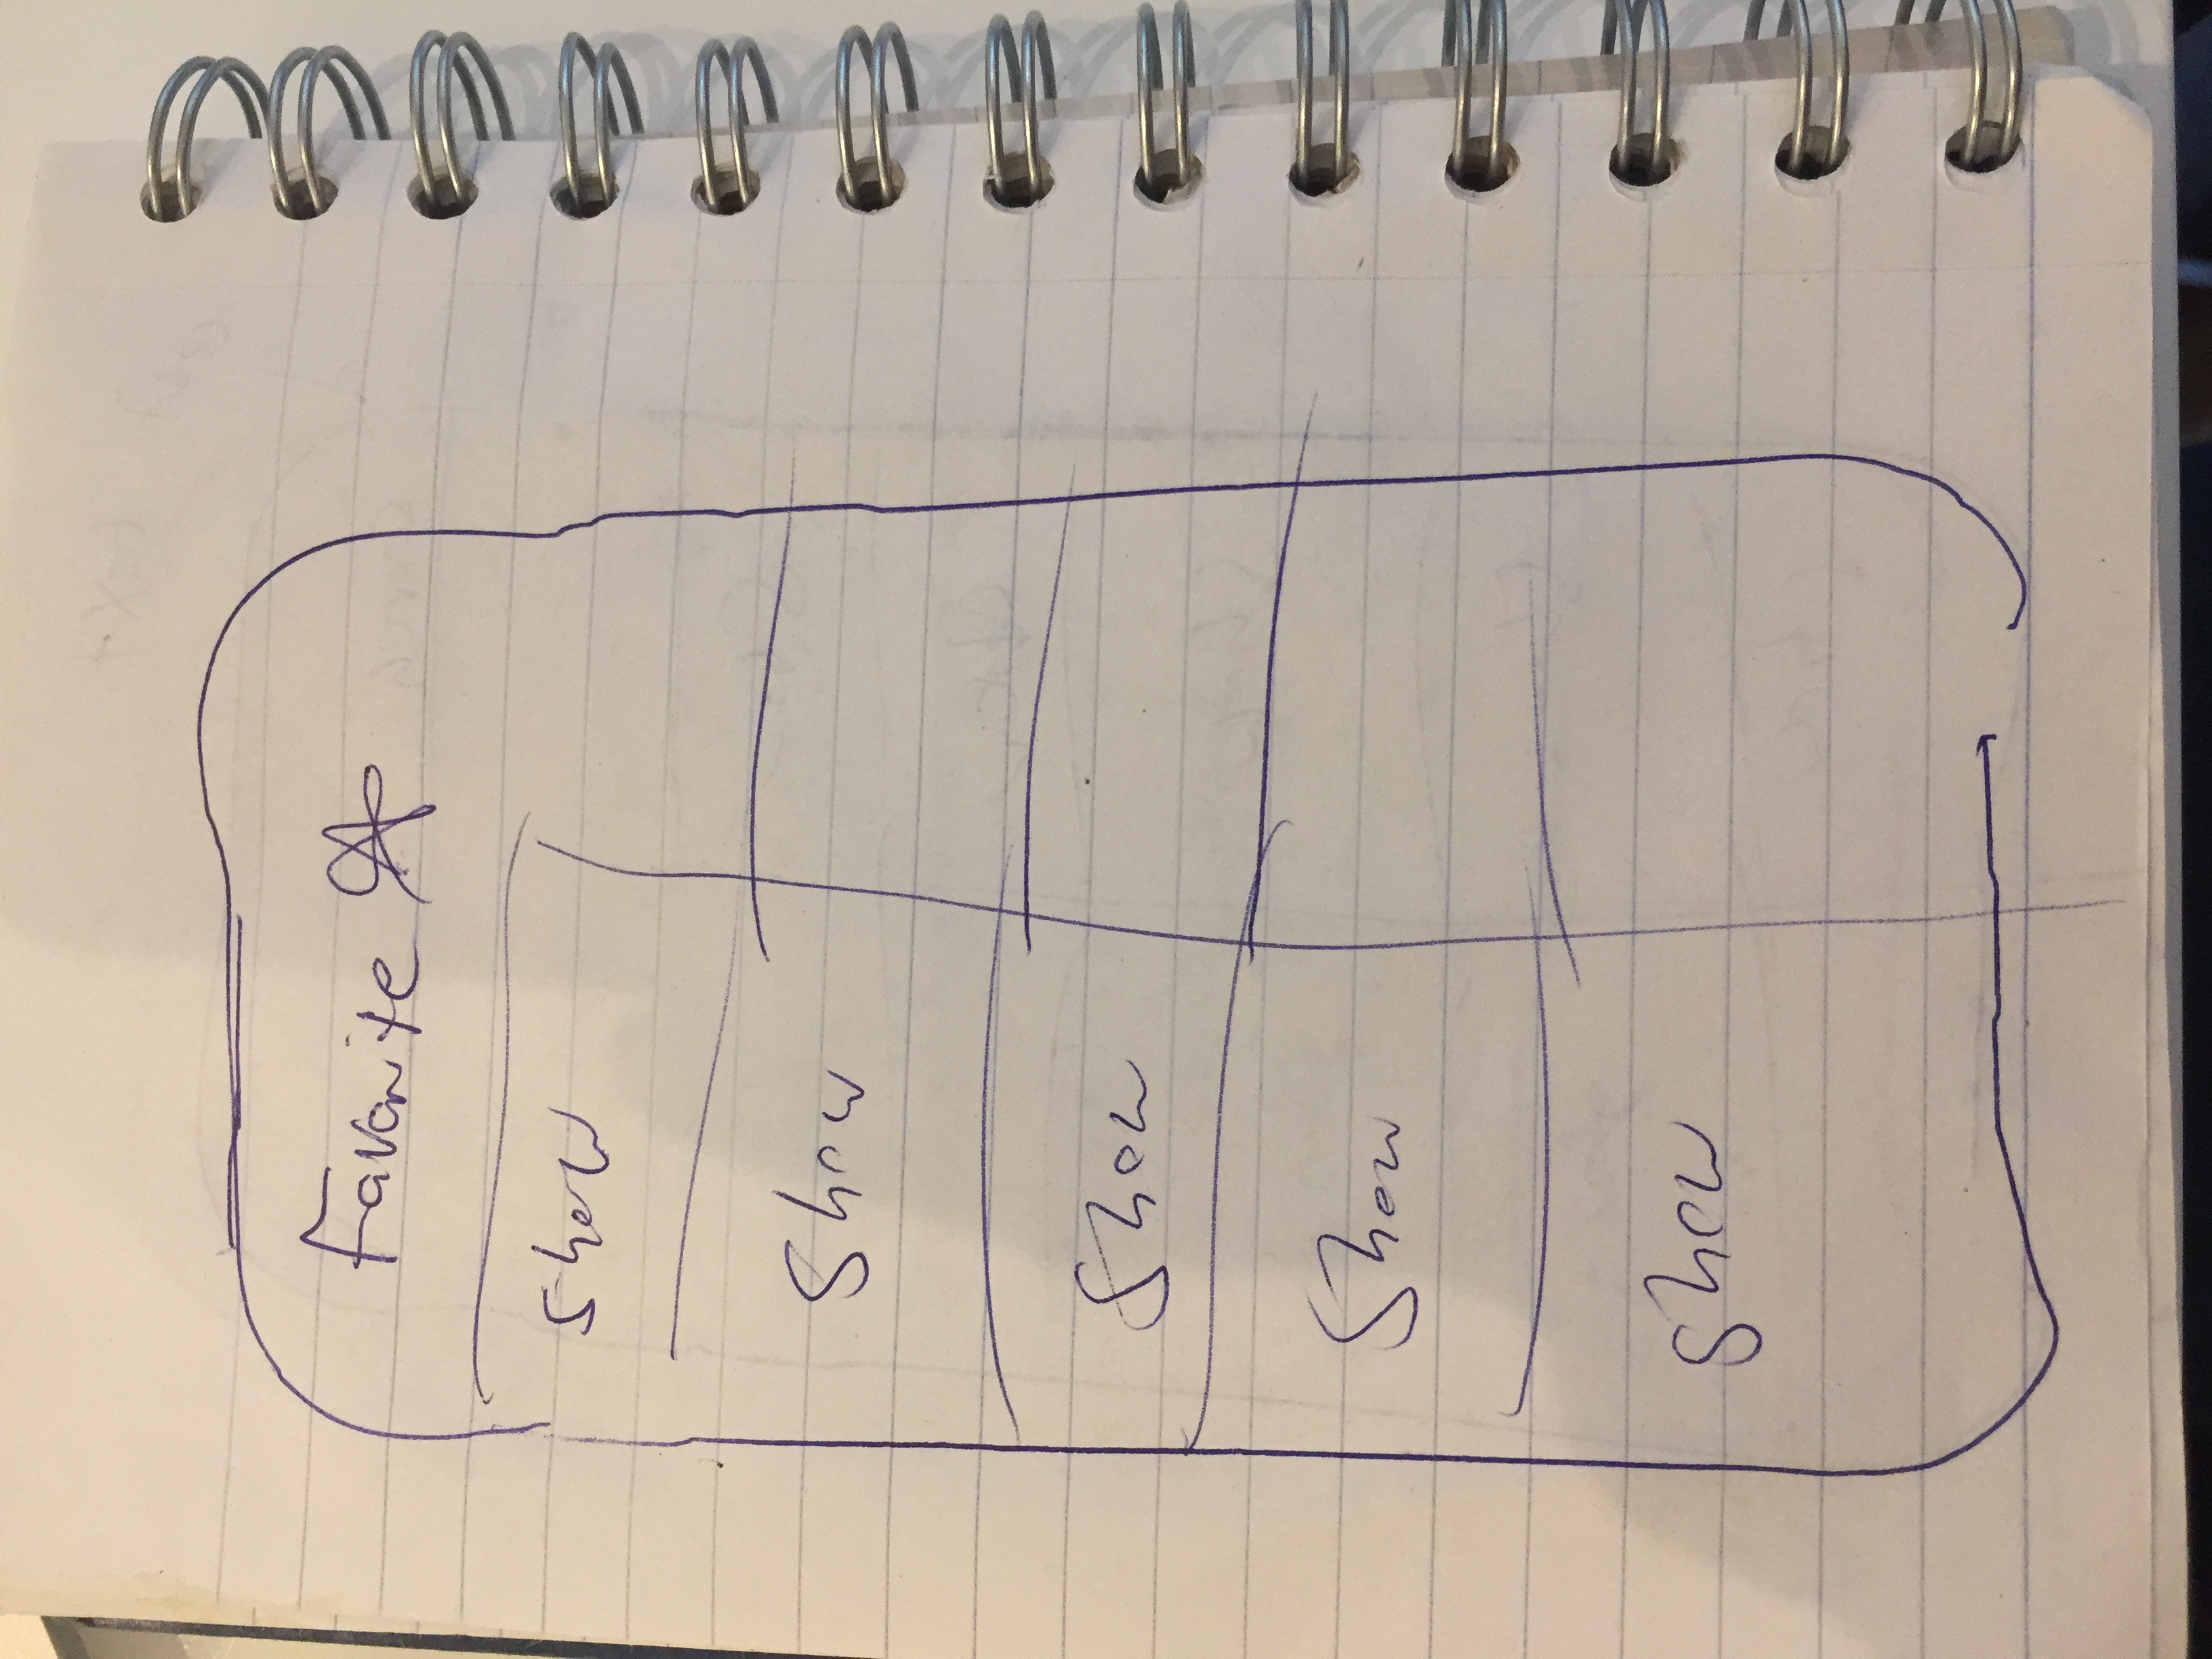 Favorite
show
Show
Show
Show
show